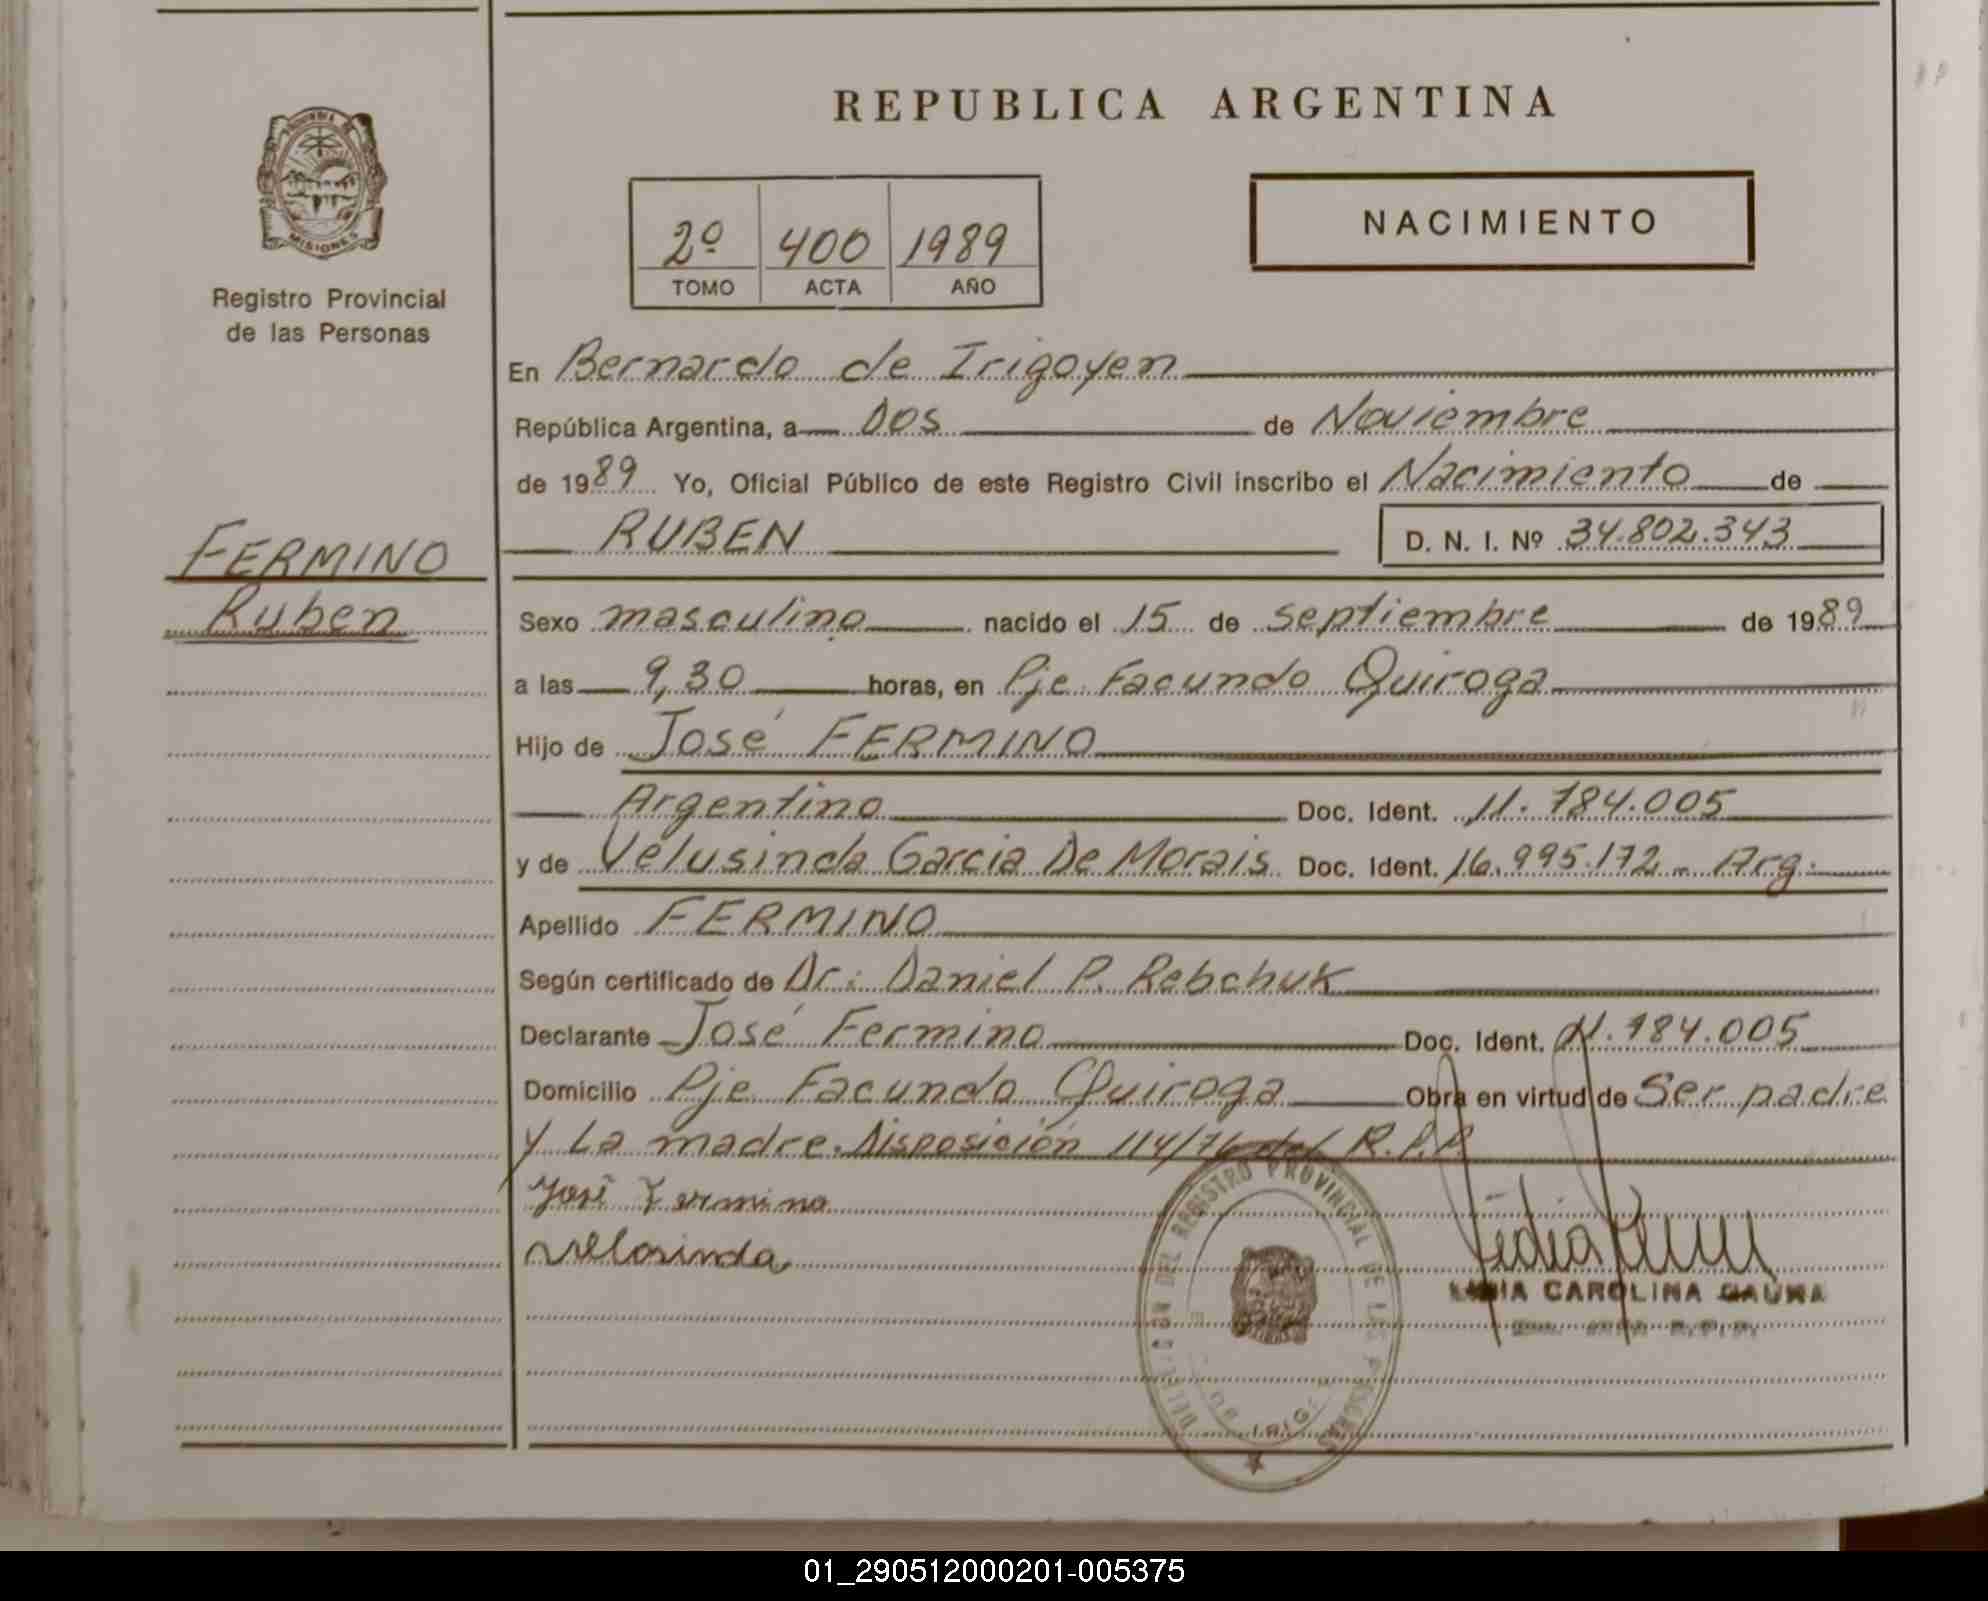 REPUBLICA ARGENTINA
PROVINCIA DE
MISIONES
Registro Provincial
de las Personas
2º 400 1989
TOMO ACTA AÑO
NACIMIENTO
En Bernardo de Irigoyen
República Argentina, a Dos de Noviembre
de 1989 Yo, Oficial Público de este Registro Civil inscribo el Nacimiento de
RUBEN D. N. I. Nº 34.802.343
FERMINO
Ruben
Sexo masculino nacido el 15 de septiembre de 1989
a las 9,30 horas, en Pje Facundo Quiroga
Hijo de José FERMINO
Argentino Doc. Ident. 11.784.005
y de Velusinda Garcia De Morais Doc. Ident. 16.995.172 - Arg.
Apellido FERMINO
Según certificado de Dr: Daniel P. Rebchuk
Declarante José Fermino Doc. Ident. 11.784.005
Domicilio Pje Facundo Quiroga Obra en virtud de Ser padre
y La madre. Disposición 114/76 del R.P.P.
José Fermino
Velosinda
DELEGACION DEL REGISTRO PROVINCIAL DE LAS PERSONAS
LIDIA CAROLINA GAUNA
01_290512000201-005375